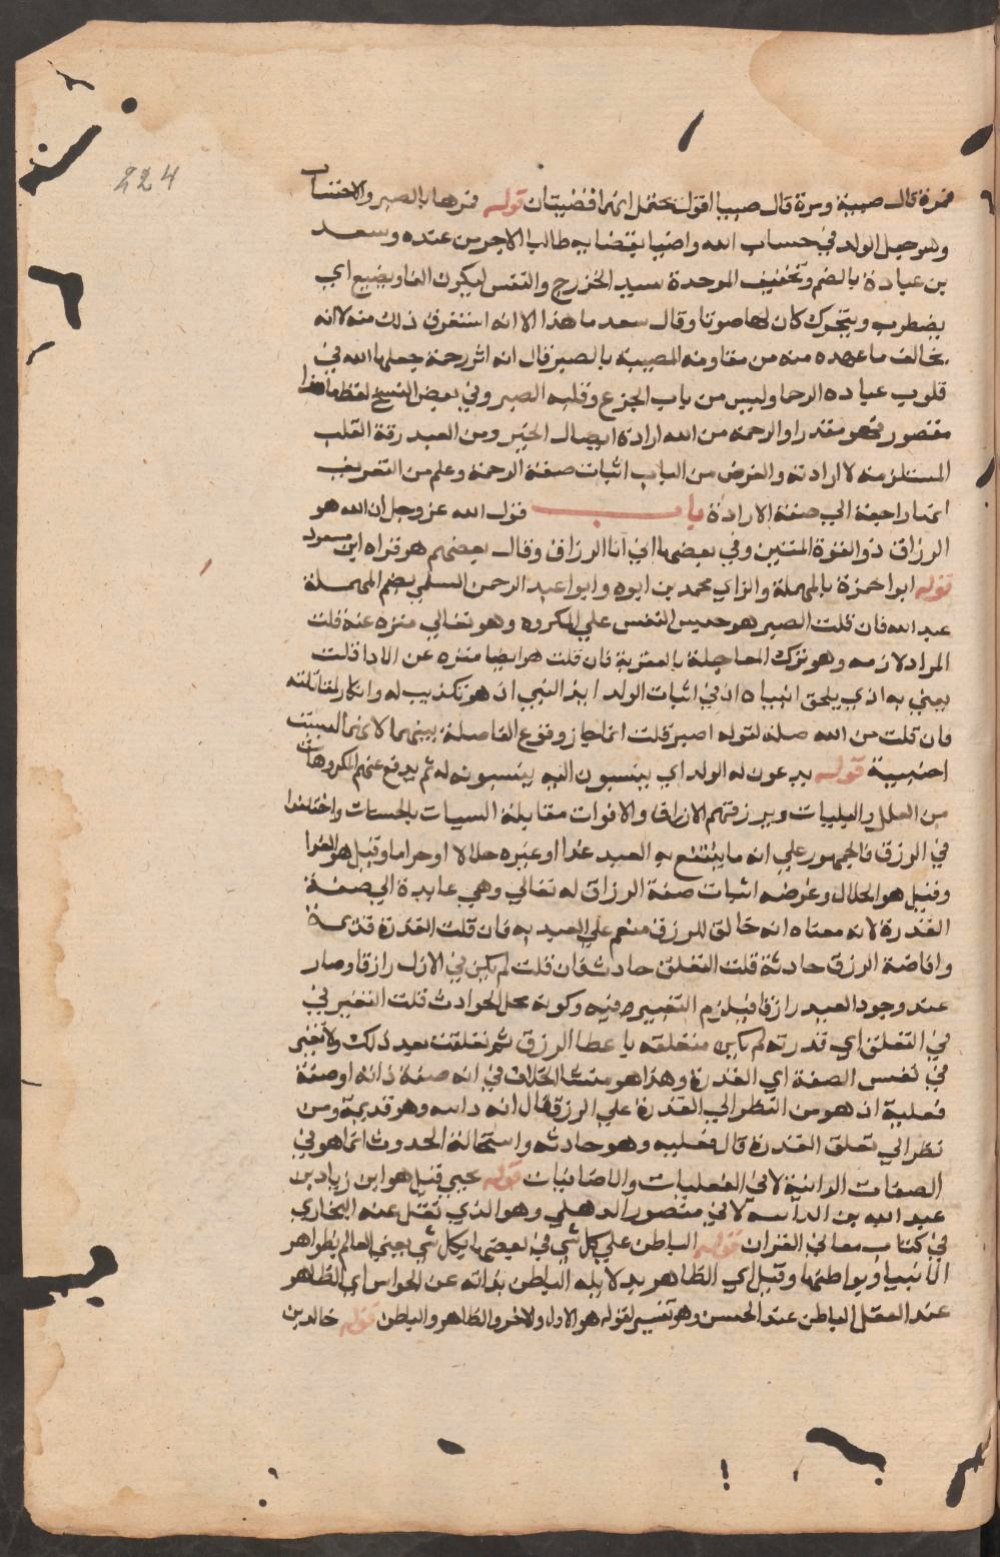 224
فمرة قال صبية ومرة قال صبيا اقول يحتمل انهما قضيتان قوله فمرها بالصبر والاحتساب
وهو جعل الولد في حساب الله راضيا بقضايه طالبا الاجر من عنده وسعد
بن عبادة بالضم وتخفيف الموحدة سيد الخزرج والنفس اي
يضطرب ويتحرك كان لها صوتا وقال سعد ما هذا الا انه استغرق ذلك منه لانه
يخالف ما عهده منه من مقاومة المصيبة بالصبر قال انه اثر رحمة جعلها الله في
قلوب عباده الرحما وليس من باب الجزع وقلبه الصبر وفي بعض النسخ لفظ ما هذا
مقصور فهو مقدرا والرحمة من الله ارادة ايصال الخير ومن العبد رقة القلب
المستلزمة لارادته والغرض من الباب اثبات صفة الرحمة وعلم من التعريف
انها راجعة الي صفة الارادة باب قول الله عز وجل ان الله هو
الرزاق ذو القوة المتين وفي بعضها اني انا الرزاق وقال بعضهم هو قراة ابن مسعود
قوله ابوا حمزة بالمهملة والزاي محمد بن وابوا عبد الرحمن السلمي بضم المهملة
عبد الله فان قلت الصبر هو حبس النفس علي المكروه وهو تعالي منزه عنه قلت
المراد لازمه وهو ترك المعاجلة بالعقوبة فان قلت هو ايضا منزه عن الاذا قلت
يعني به اذي يلحق انبياه اذ في اثبات الولد ايذا النبي اذ هو تكذيب له وانكار لمقالته
فان قلت من الله صلة لقوله اصبر قلت انما جاز وقوع الفاصلة بينهما لانها ليست
اجنبية قوله يدعون له الولد اي ينسبون اليه ينسبونه له ثم يدفع عنهم المكروهات
من العلل والبليات ويرزقهم الارزاق والاقوات مقابلة السيات بالحسنات واختلفوا
في الرزق فالجمهور علي انه ما ينتفع به العبد غذا او غيره حلالا او حراما وقيل هو الغذا
وقيل هو الحلال وغرضه اثبات صفة الرزاق له تعالي وهي عايدة الي صفة
القدرة لانه معناه انه خالق للرزق منعم علي العبد به فان قلت القدرة قديمة
وافاضة الرزق حادثة قلت التعلق حادث فان قلت لم يكن في الازل رازقا وصار
عند وجود العبد رازقا فيلزم التغيير فيه وكونه محل الحوادث قلت التغير في
في التعلق اي قدرته لم تكن متعلقة باعطا الرزق ثم تعلقت بعد ذلك ولا تغير
في نفس الصفة اي القدرة وهذا هو منشا الخلاف في انه صفة ذاته او صفة
فعلية اذ هو من النظر الي القدرة علي الرزق قال انه ذاته وهو قديمة ومن
نظر الي تعلق القدرة قال فعليه وهو حادثه واستحالة الحدوث انما هو في
الصفات الذاتية لا في الفعليات والاضافيات قوله يحيي قيل هو ابن زياد بن
عبد الله بن منصور الدهلي وهو الذي نقل عنه البخاري
في كتاب معاني القران قوله الباطن علي كل شي في بعضها بكل شي يعني العالم بظواهر
الاشيا وبواطنها وقيل اي الظاهر بدلايله الباطن بذاته عن الحواس اي الظاهر
عند العقل الباطن عند الحس وهو تفسير لقوله هو الاول والاخر والظاهر والباطن قوله خالد بن